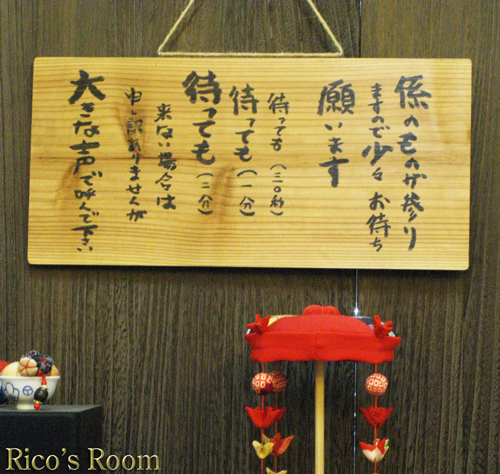 係のものが参り
ますので少々お待ち
願います
待っても（三〇秒）
待っても（一分）
待っても（二分）
来ない場合は
申し訳ありませんが
大きな声で呼んで下さい
Rico's Room